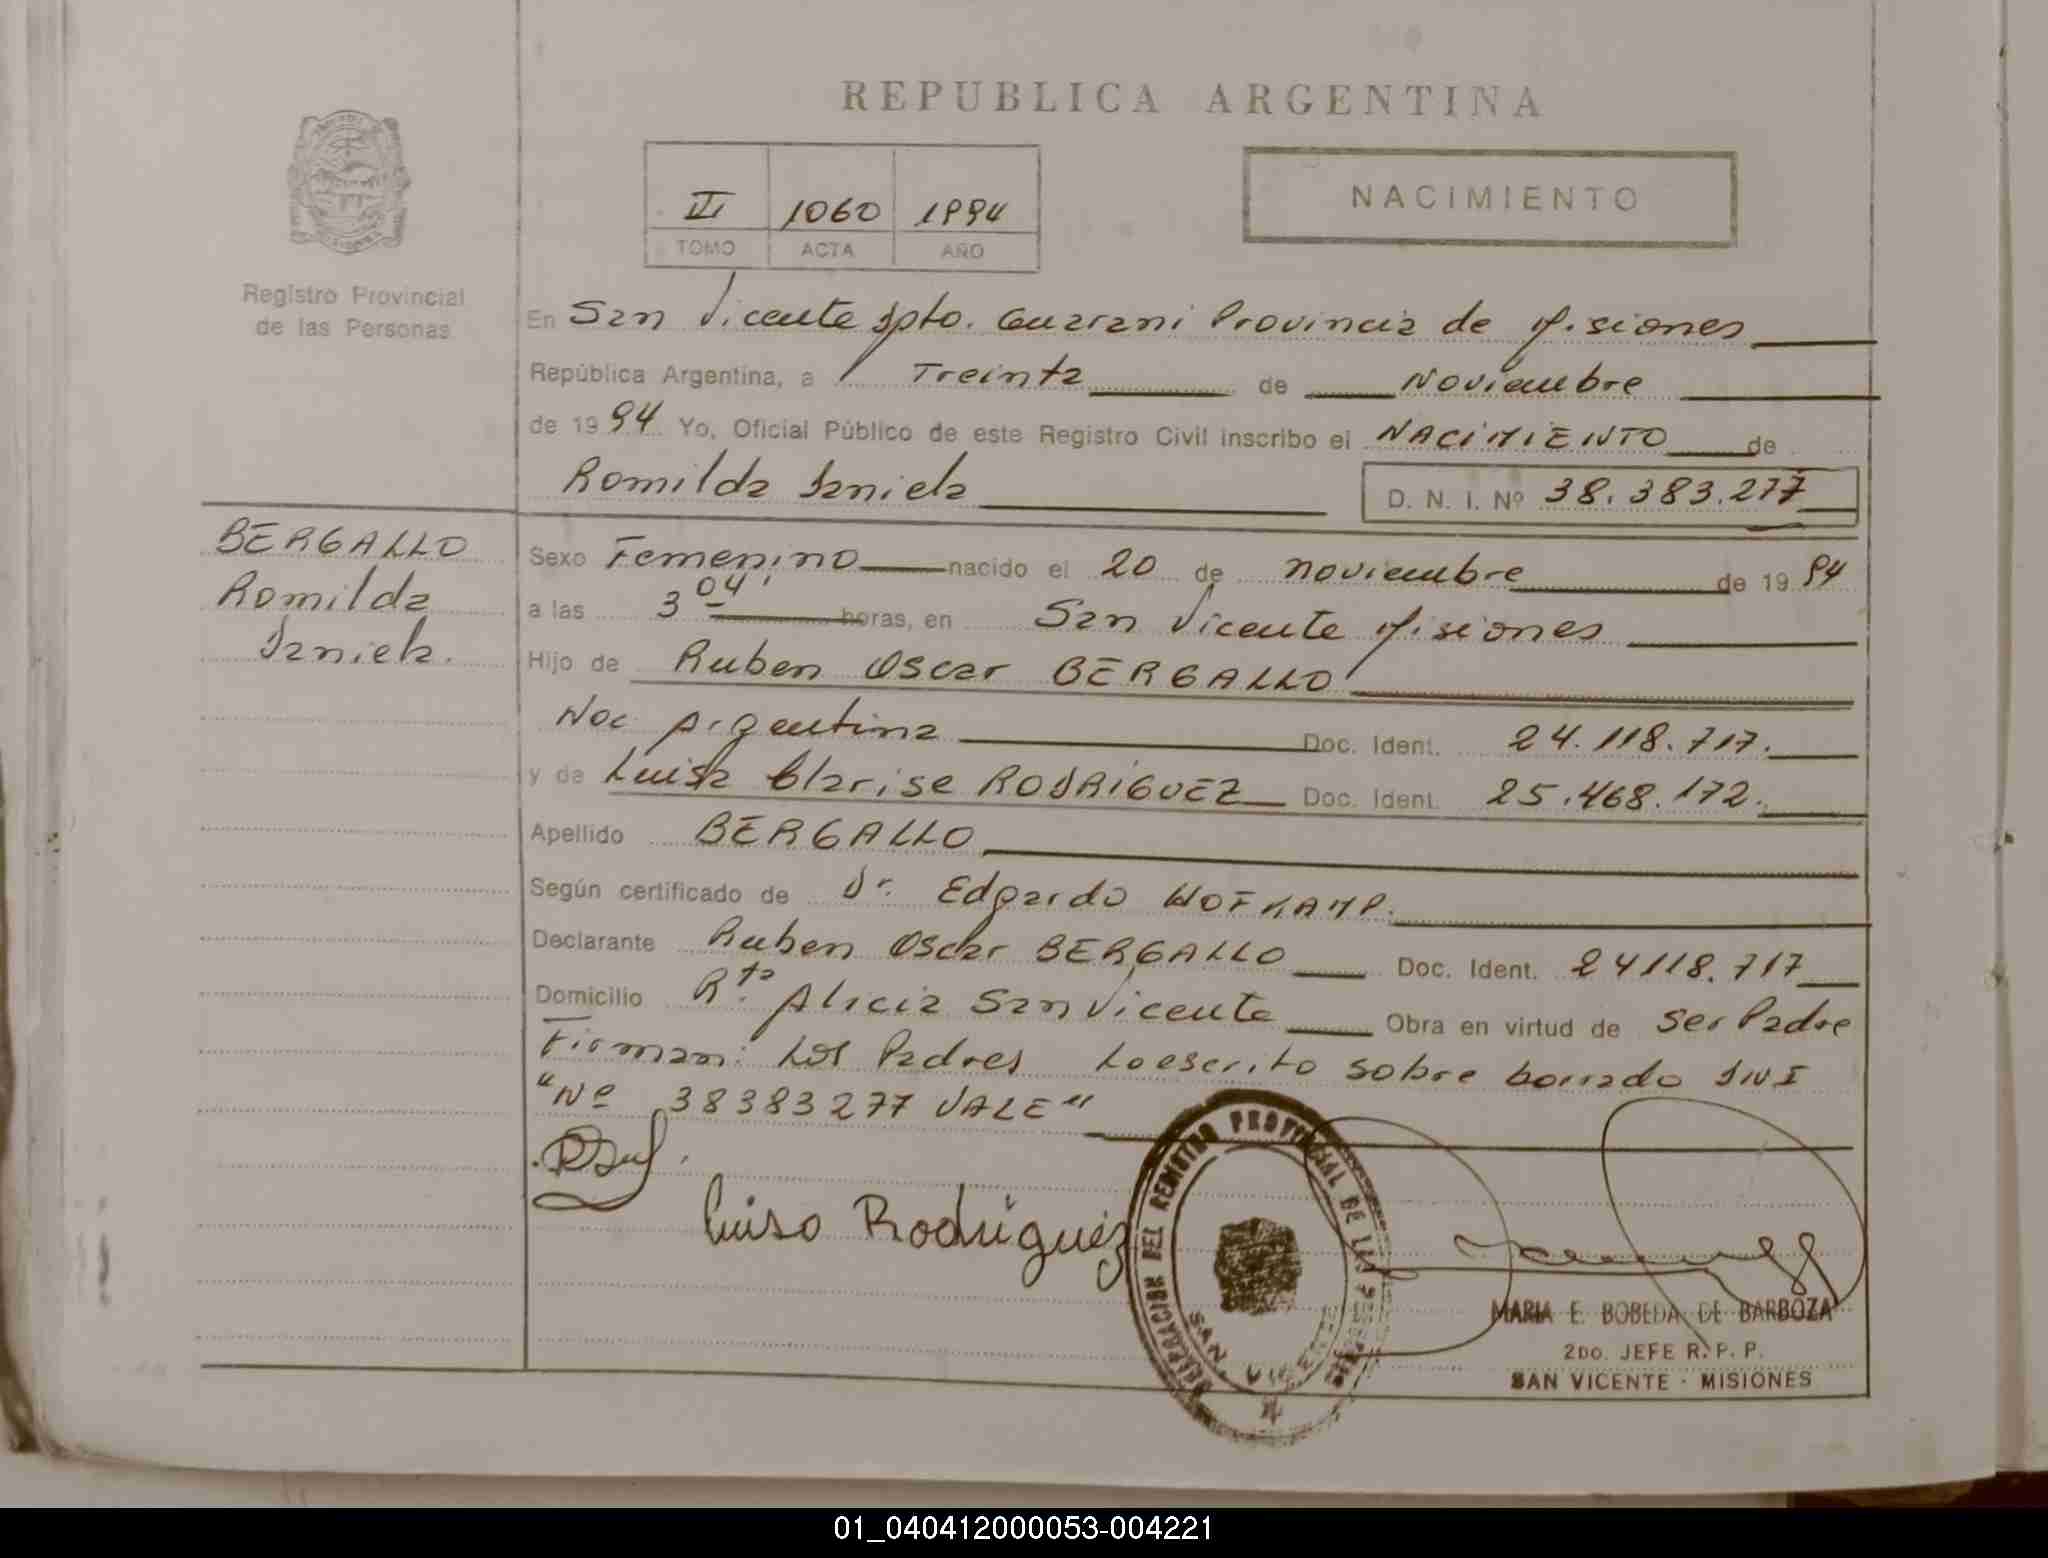 REPUBLICA ARGENTINA
VI 1060 1994
TOMO ACTA AÑO
NACIMIENTO
Registro Provincial
de las Personas
En San Vicente Dpto. Guarani Provincia de Misiones
República Argentina, a Treinta de Noviembre
de 1994 Yo, Oficial Público de este Registro Civil inscribo el NACIMIENTO de
Romilda Daniela
D. N. I. Nº 38.383.277
BERGALLO
Romilda
Daniela.
Sexo Femenino nacido el 20 de noviembre de 1994
a las 3 04' horas, en San Vicente Misiones
Hijo de Ruben Oscar BERGALLO
Nac. Argentina Doc. Ident. 24.118.717.
y de Luisa Clarise RODRIGUEZ Doc. Ident. 25.468.172.
Apellido BERGALLO
Según certificado de Dr. Edgardo HOFKAMP.
Declarante Ruben Oscar BERGALLO Doc. Ident. 24118.717
Domicilio Rta. Alicia San Vicente Obra en virtud de ser Padre
Firman: Los Padres Lo escrito sobre borrado DNI
"Nº 38383277 VALE"
Luisa Rodriguez
DELEGACION DEL REGISTRO PROVINCIAL DE LAS PERSONAS
SAN VICENTE
MARIA E. BOBEDA DE BARBOZA
2DO. JEFE R. P. P.
SAN VICENTE - MISIONES
01_040412000053-004221